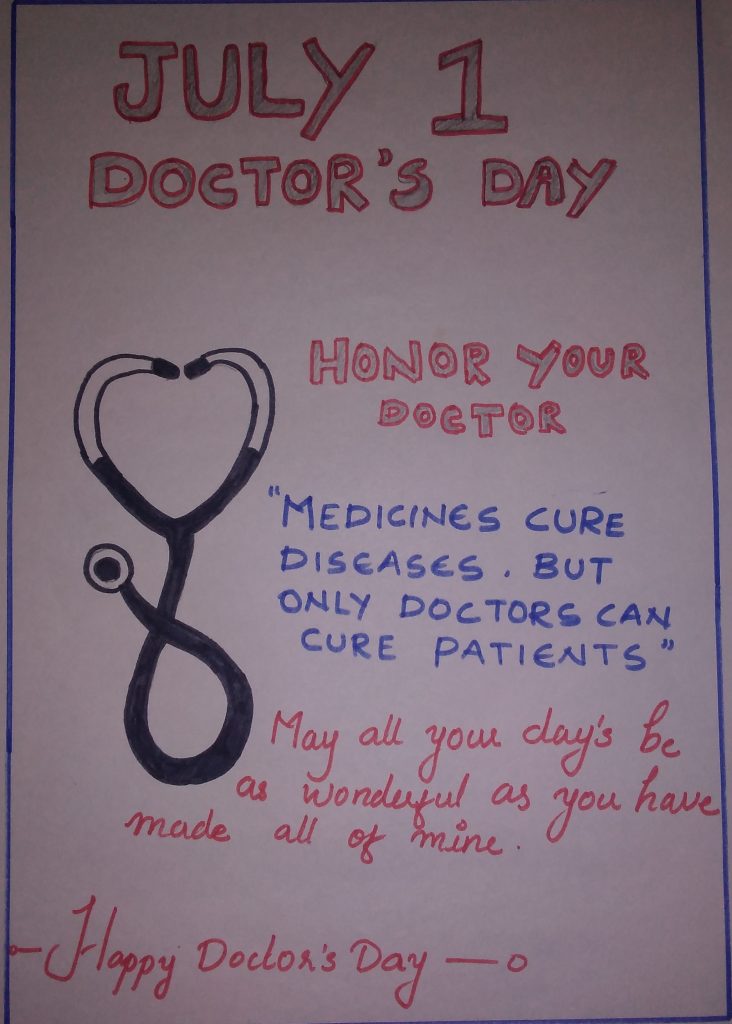 JULY 1
DOCTOR'S DAY
HONOR YOUR
DOCTOR
"MEDICINES CURE
DISEASES. BUT
ONLY DOCTORS CAN
CURE PATIENTS"
May all your day's be
as wonderful as you have
made all of mine.
Happy Doctor's Day